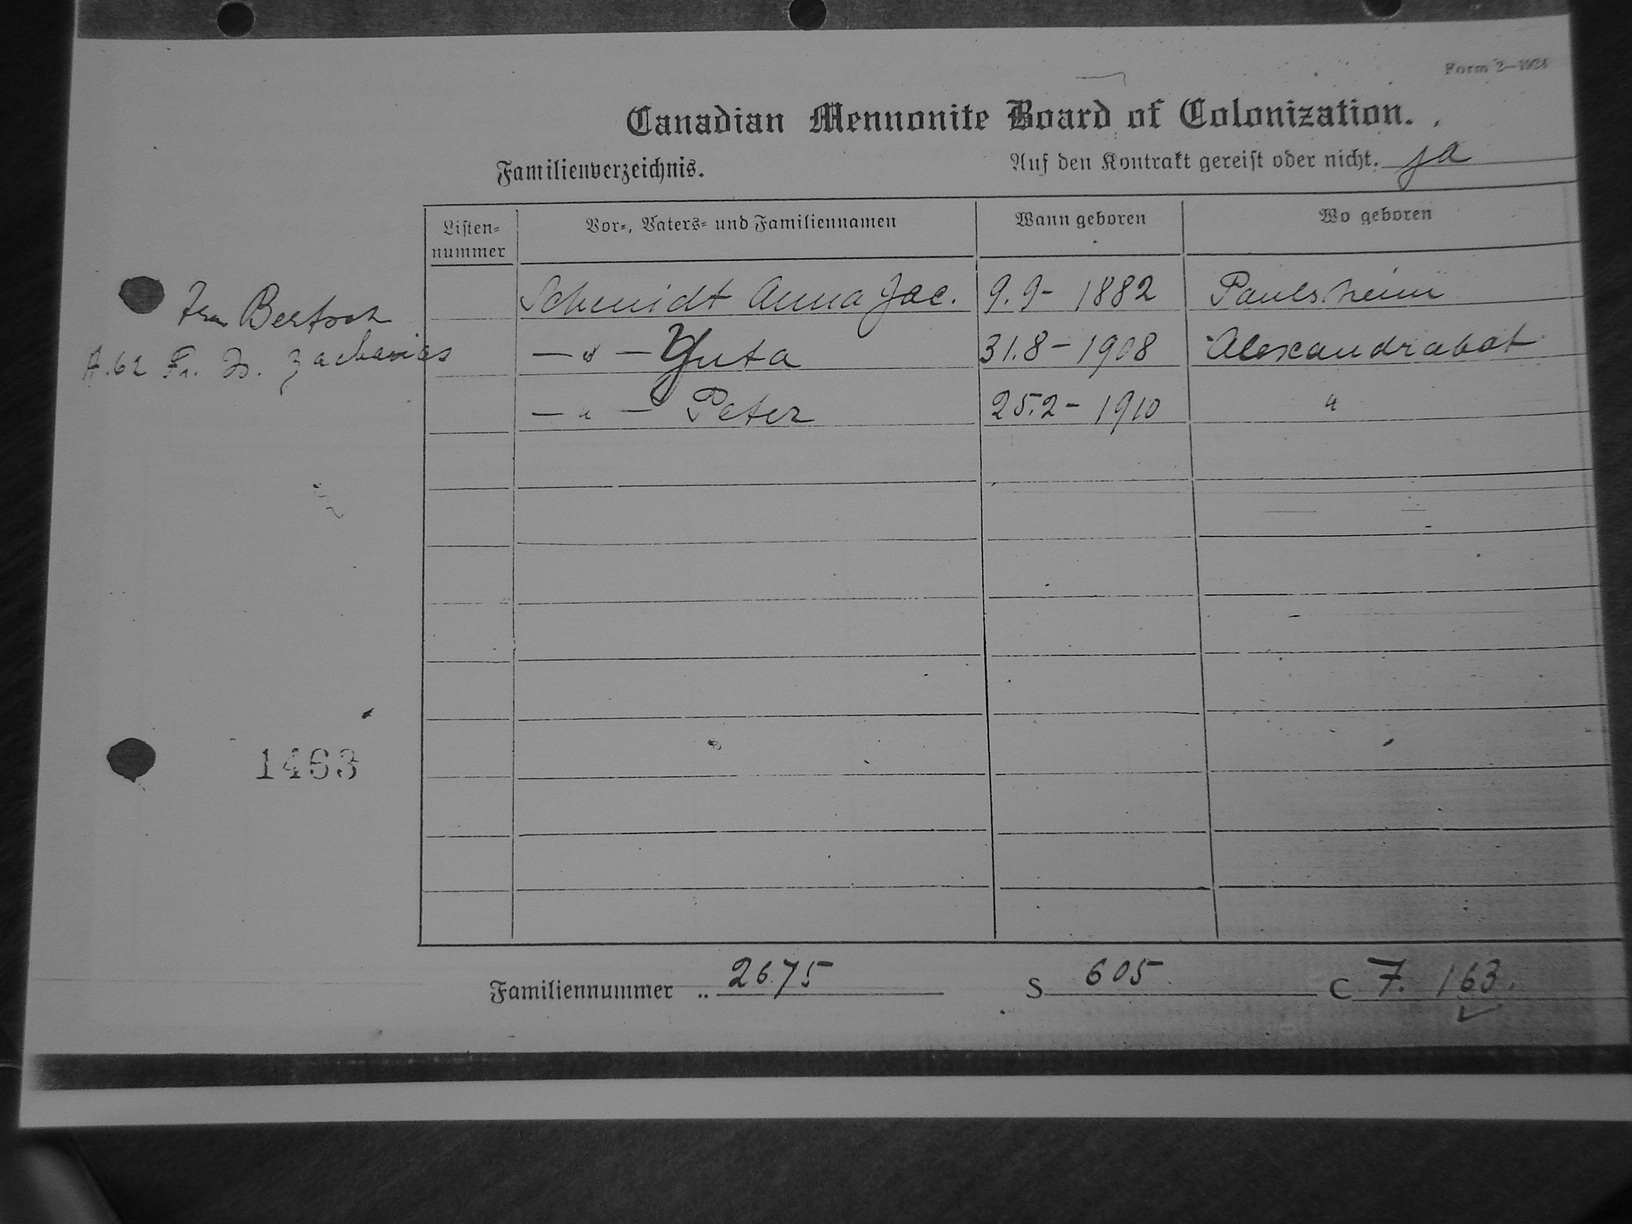 Form 2—1924
Canadian Mennonite Board of Colonization.
Familienverzeichnis.
Auf den Kontrakt gereist oder nicht. ja
Listen-nummer
Vor-, Vaters- und Familiennamen
Wann geboren
Wo geboren
Schmidt Anna Jac. 9.9- 1882 Paulsheim
Frau Bertsch
— " — Yuta 31.8- 1908 Alexandrabat
A.62 Fr. Is. Zacharias
— " — Peter 25.2- 1910 "
1463
Familiennummer .. 2675 S 605 C 7. 163.